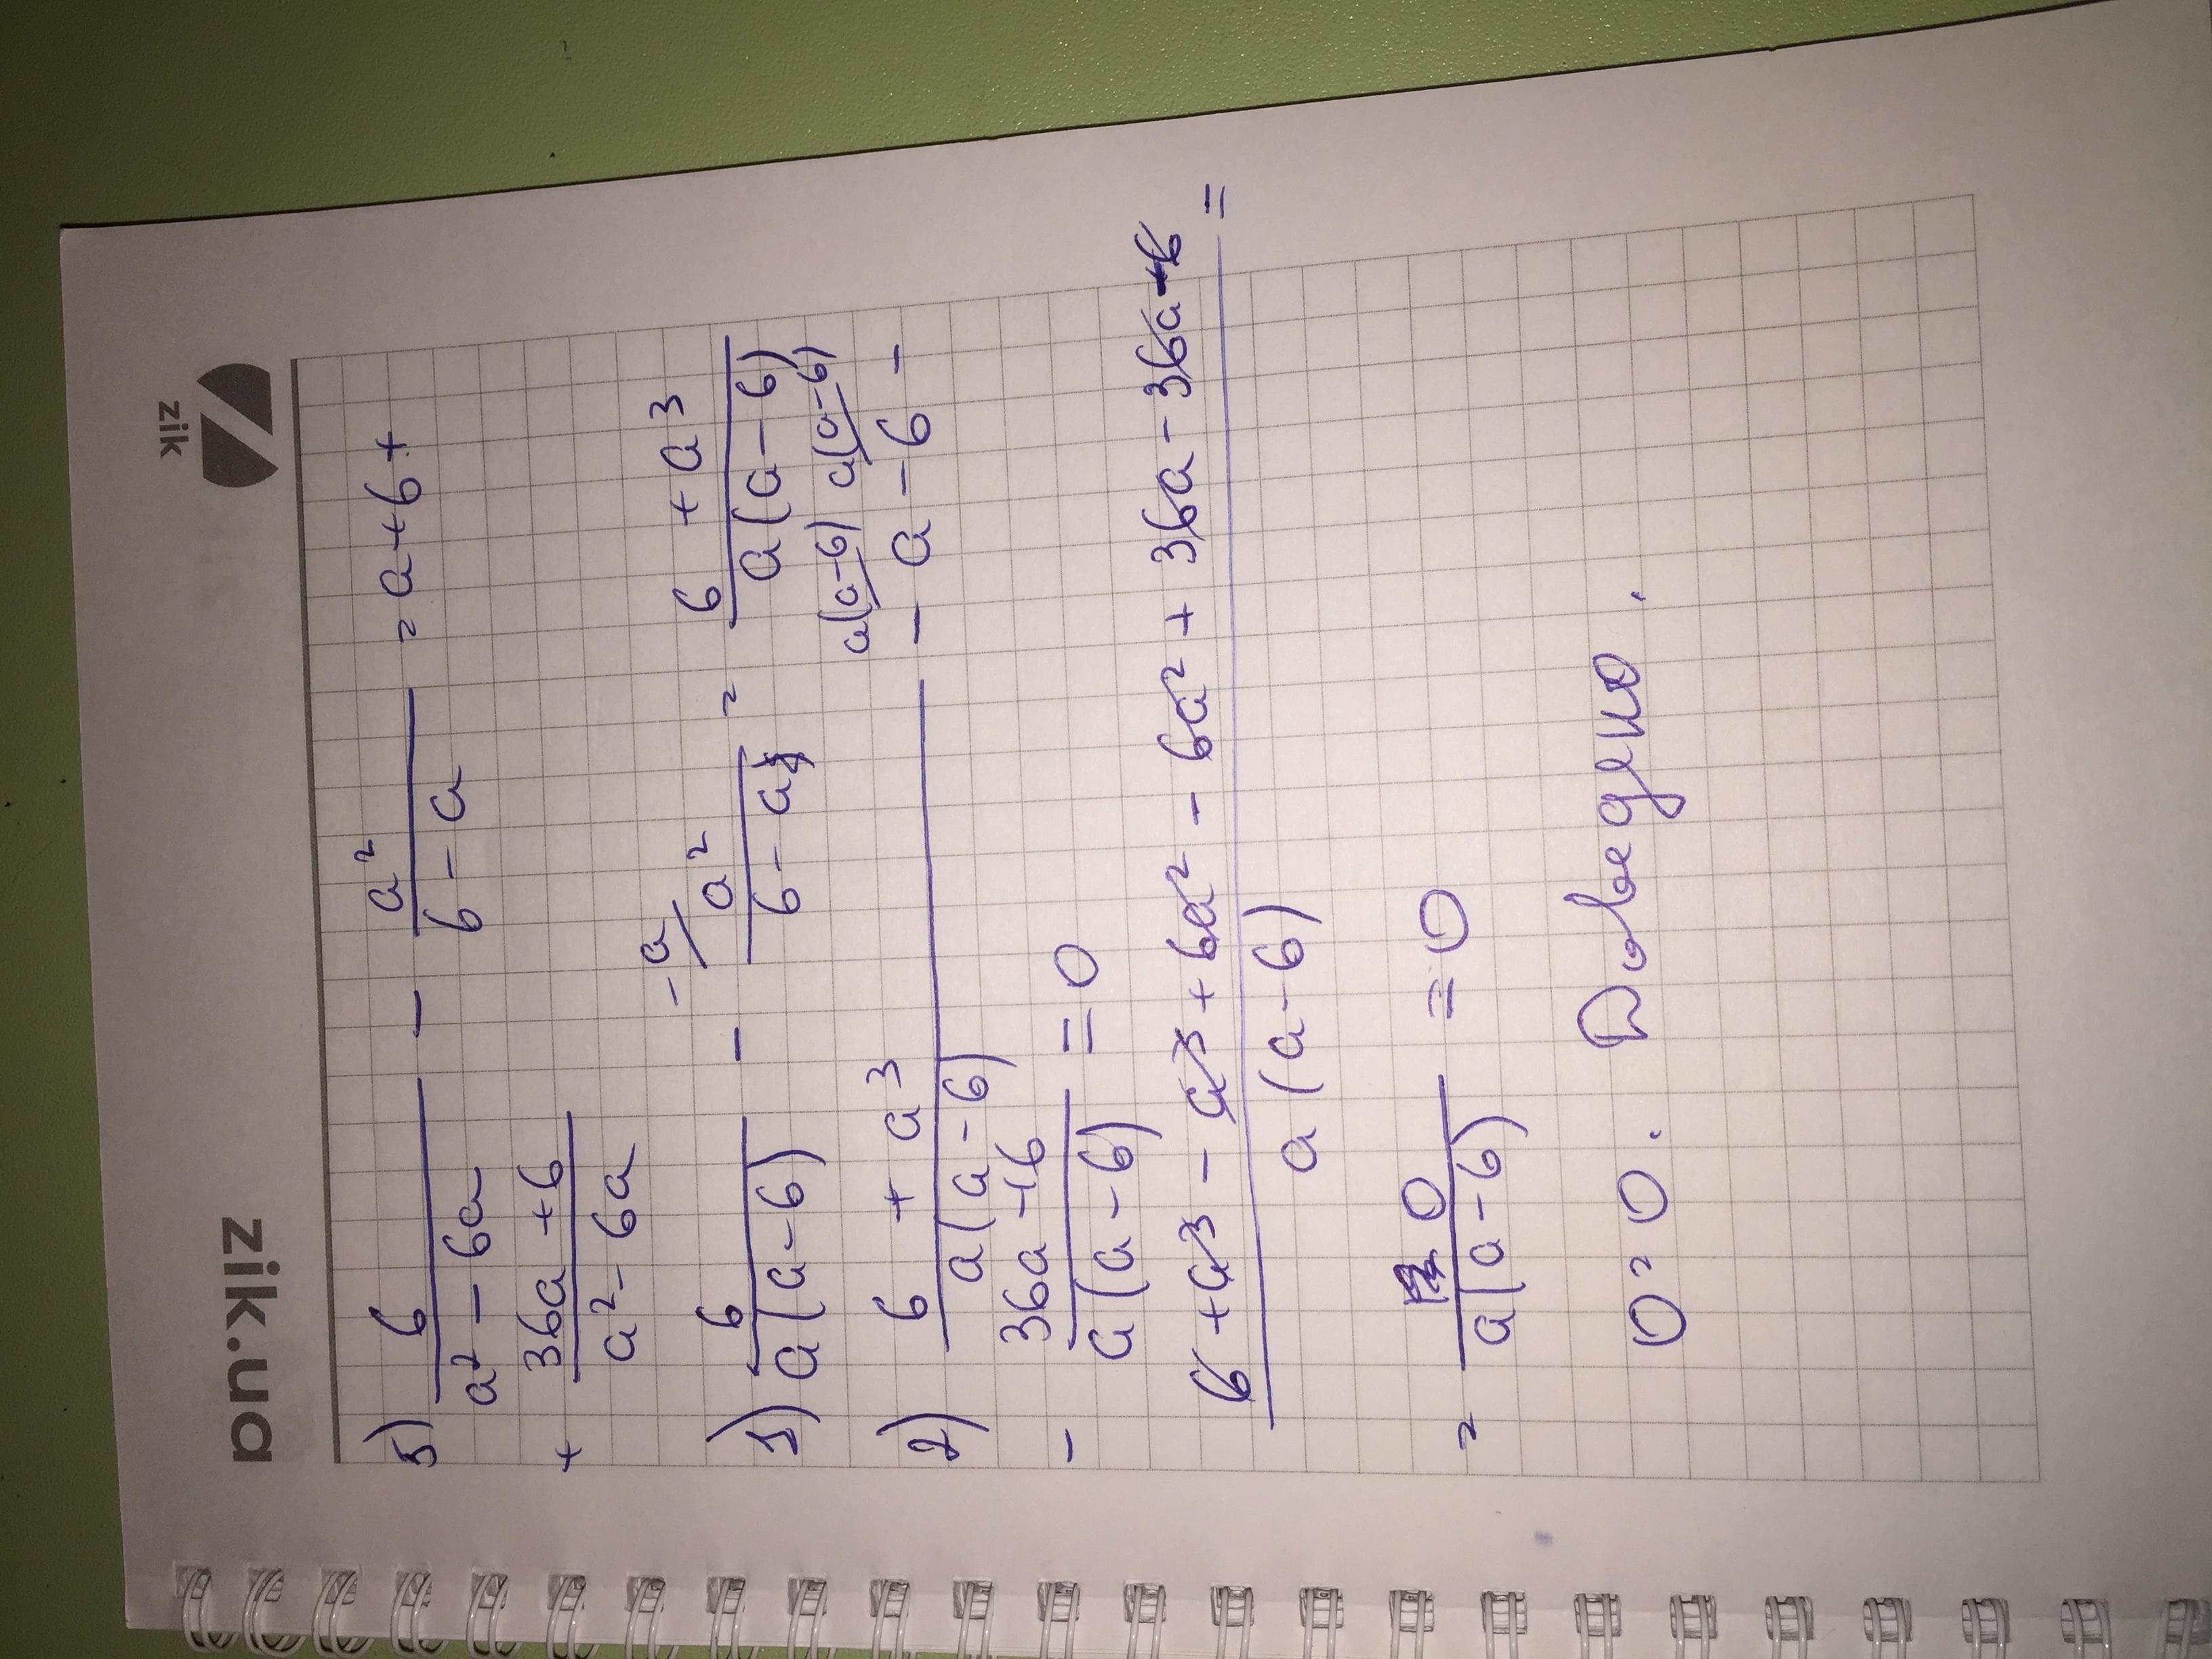 zik.ua
zik
5) 6/(a² - 6a) - a²/(6 - a) = a + 6 +
+ (36a + 6)/(a² - 6a)
1) 6/(a(a - 6)) - -a/ a²/(6 - a) = (6 + a³)/(a(a - 6))
a(a-6) a(a-6)
2) (6 + a³)/(a(a - 6)) - a - 6 -
- (36a + 6)/(a(a - 6)) = 0
(6 + a³ - a³ + 6a² - 6a² + 36a - 36a - 6)/(a(a - 6)) =
= 0/(a(a - 6)) = 0
0 = 0. Доведено.